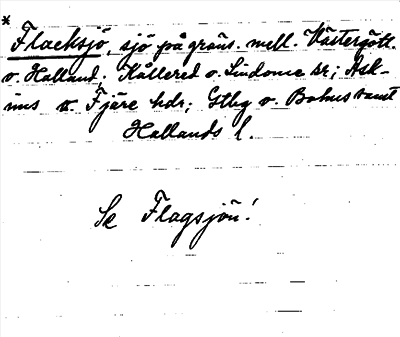 *
Flacksjö, sjö på gräns. mell. Västergötl.
o. Halland; Kållered o. Lindome sr; Ask-
ims o. Fjäre hdr; Gtbg o. Bohus samt
Hallands l.
Se Flagsjön!